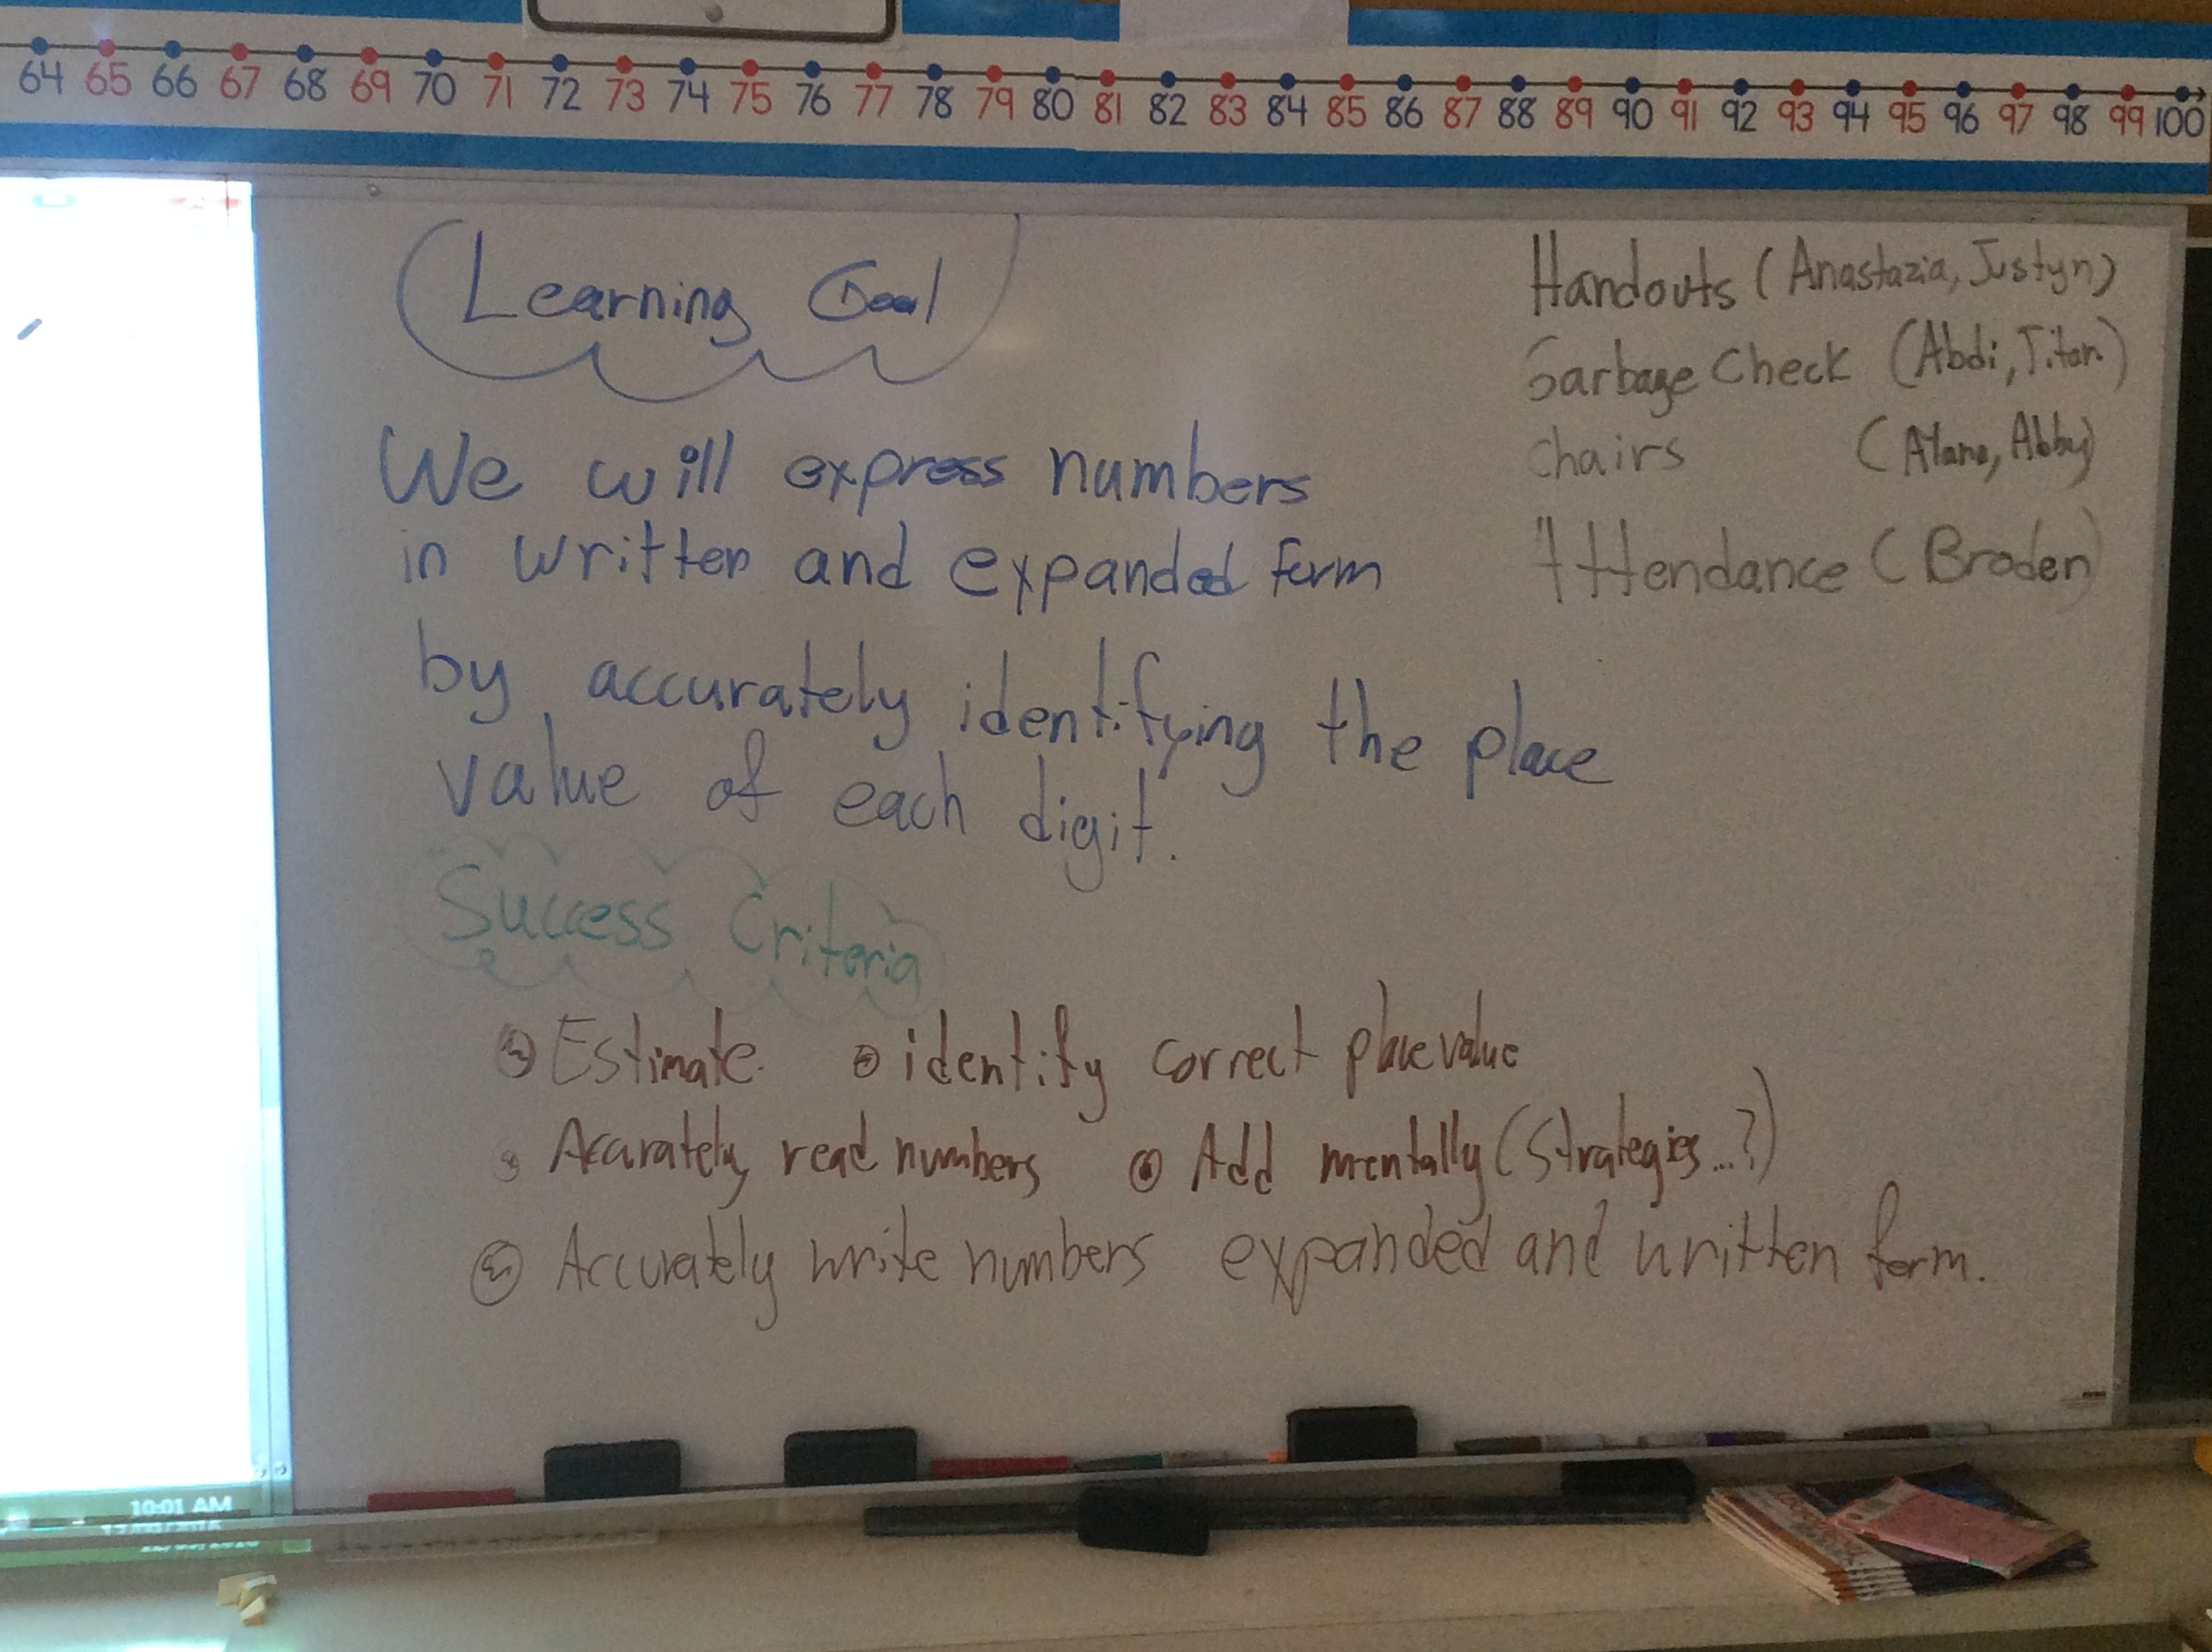 64 65 66 67 68 69 70 71 72 73 74 75 76 77 78 79 80 81 82 83 84 85 86 87 88 89 90 91 92 93 94 95 96 97 98 99 100
Learning Goal
We will express numbers
in written and expanded form
by accurately identifying the place
value of each digit.
Handouts (Anastazia, Justyn)
Garbage Check (Abdi, Titan)
chairs (Alana, Abby)
Attendance (Broden)
Success Criteria
Estimate. identify correct place value
Accurately read numbers Add mentally (Strategies...?)
Accurately write numbers expanded and written form.
10:01 AM